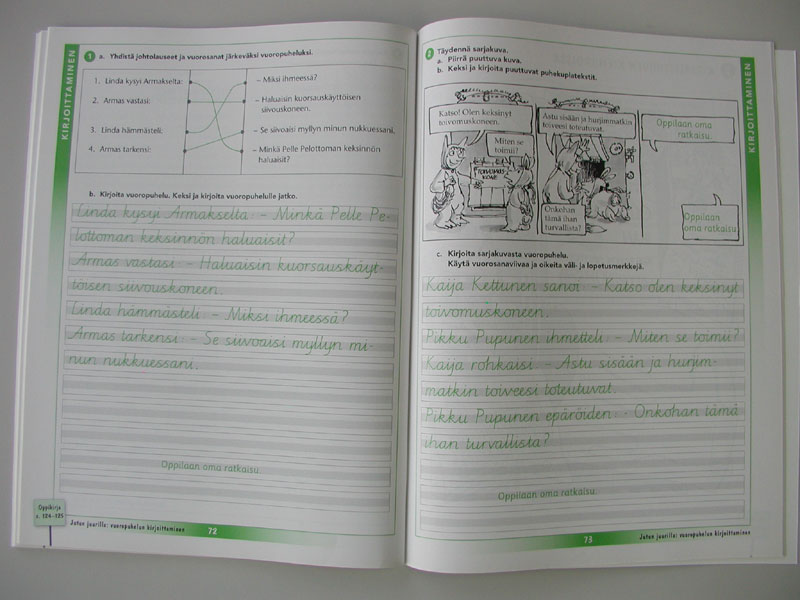 KIRJOITTAMINEN
1 a. Yhdistä johtolauseet ja vuorosanat järkeväksi vuoropuheluksi.
1. Linda kysyi Armakselta:
– Miksi ihmeessä?
2. Armas vastasi:
– Haluaisin kuorsauskäyttöisen
siivouskoneen.
3. Linda hämmästeli:
– Se siivoaisi myllyn minun nukkuessani.
4. Armas tarkensi:
– Minkä Pelle Pelottoman keksinnön
haluaisit?
b. Kirjoita vuoropuhelu. Keksi ja kirjoita vuoropuhelulle jatko.
Linda kysyi Armakselta: – Minkä Pelle Pe-
lottoman keksinnön haluaisit?
Armas vastasi: – Haluaisin kuorsauskäyt-
töisen siivouskoneen.
Linda hämmästeli: – Miksi ihmeessä?
Armas tarkensi: – Se siivoaisi myllyn mi-
nun nukkuessani.
Oppilaan oma ratkaisu.
Oppikirja
s. 124–125
Jutun juurilla: vuoropuhelun kirjoittaminen
72
2 Täydennä sarjakuva.
a. Piirrä puuttuva kuva.
b. Keksi ja kirjoita puuttuvat puhekuplatekstit.
KIRJOITTAMINEN
Katso! Olen keksinyt
toivomuskoneen.
Miten se
toimii?
TOIVOMUS
KONE
Astu sisään ja hurjimmatkin
toiveesi toteutuvat.
Onkohan
tämä ihan
turvallista?
Oppilaan oma
ratkaisu.
Oppilaan
oma ratkaisu.
c. Kirjoita sarjakuvasta vuoropuhelu.
Käytä vuorosanaviivaa ja oikeita väli- ja lopetusmerkkejä.
Kaija Kettunen sanoi: – Katso olen keksinyt
toivomuskoneen.
Pikku Pupunen ihmetteli: – Miten se toimii?
Kaija rohkaisi: – Astu sisään ja hurjim-
matkin toiveesi toteutuvat.
Pikku Pupunen epäröiden: – Onkohan tämä
ihan turvallista?
Oppilaan oma ratkaisu.
73
Jutun juurilla: vuoropuhelun kirjoittaminen